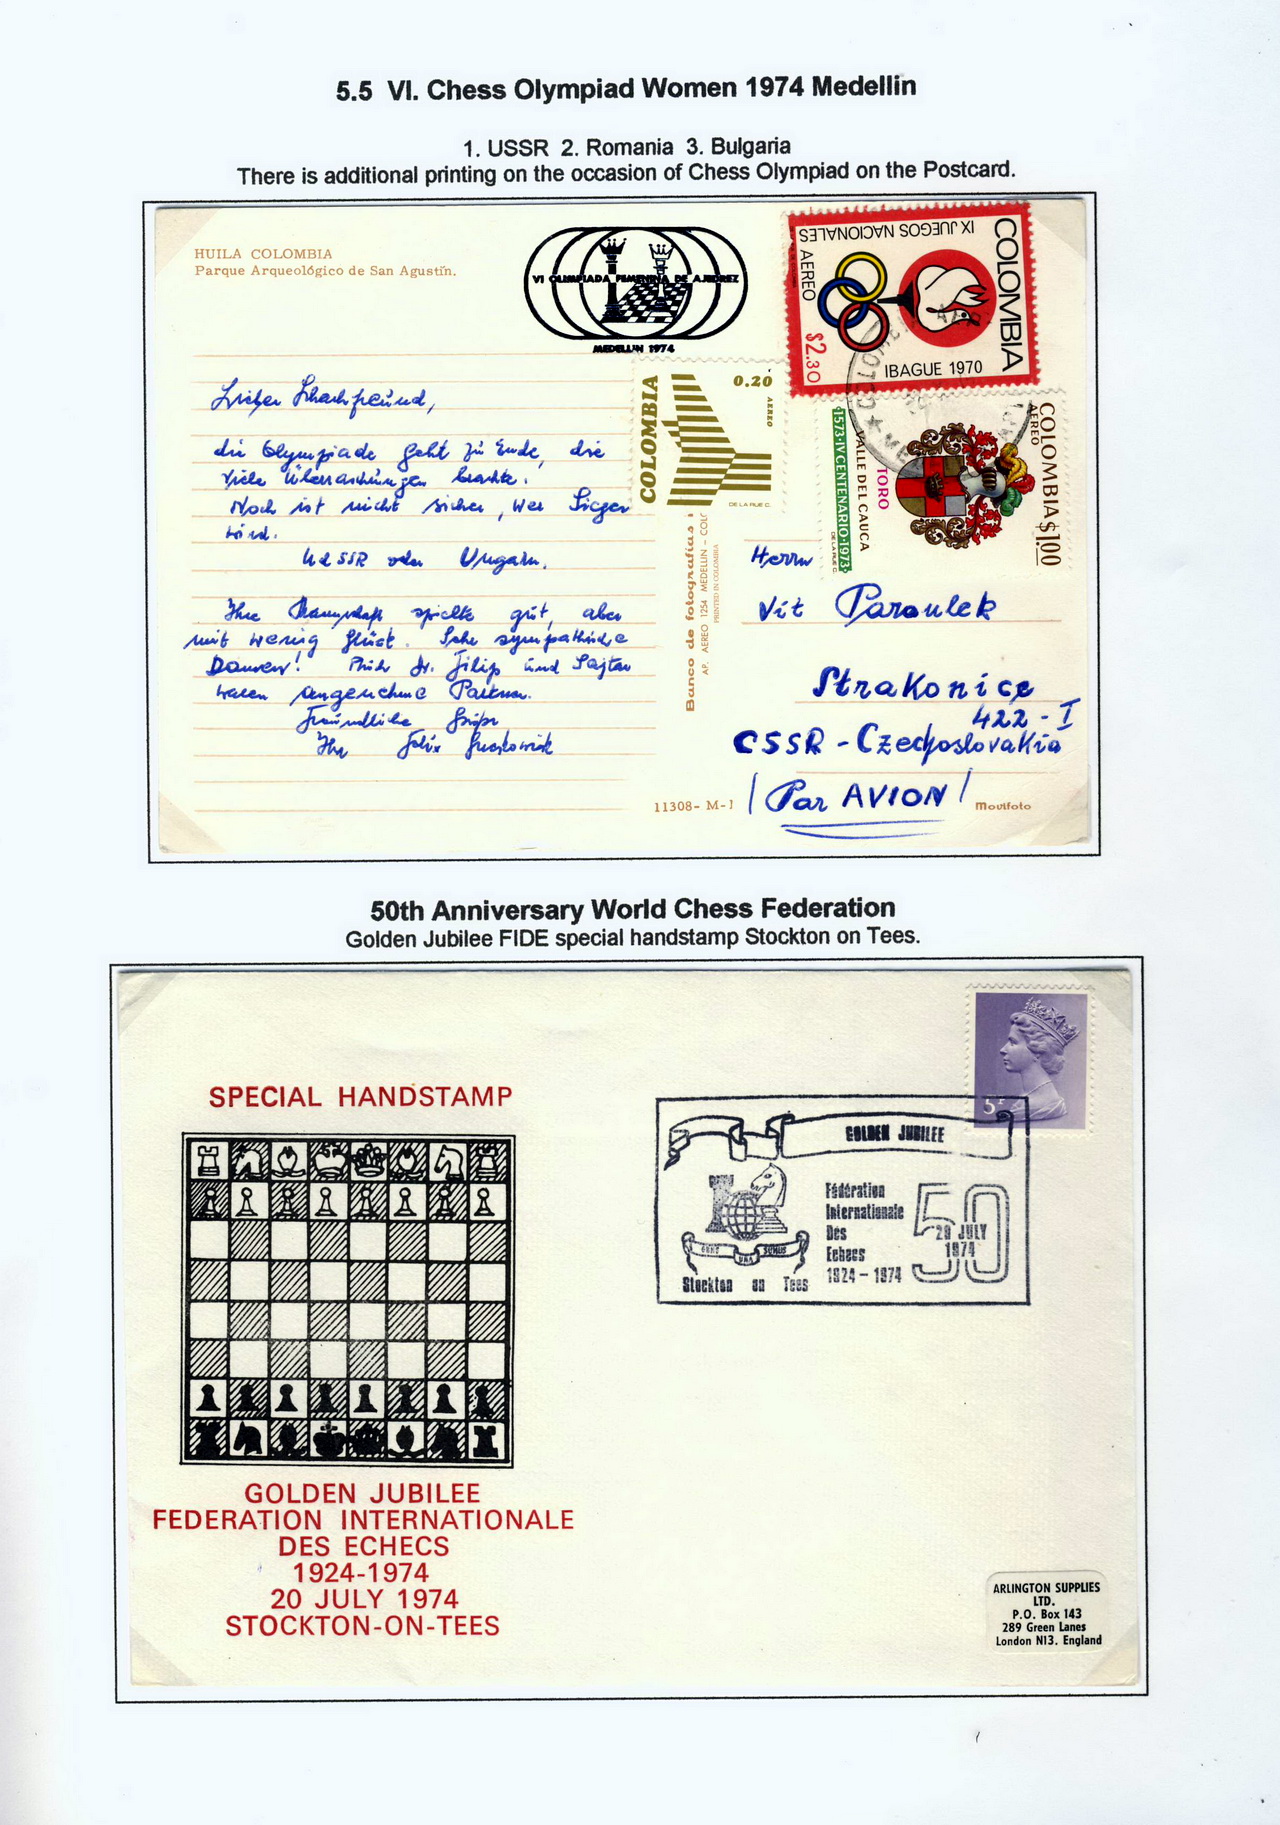 5.5 VI. Chess Olympiad Women 1974 Medellin
1. USSR 2. Romania 3. Bulgaria
There is additional printing on the occasion of Chess Olympiad on the Postcard.
HUILA COLOMBIA
Parque Arqueológico de San Agustín.
VI OLIMPIADA FEMENINA DE AJEDREZ
MEDELLIN 1974
COLOMBIA
IX JUEGOS NACIONALES
AEREO
$2.30
IBAGUE 1970
COLOMBIA
0.20
AEREO
DE LA RUE C.
COLOMBIA $1.00
AEREO
TORO
VALLE DEL CAUCA
1573·IV CENTENARIO·1973
DE LA RUE C.
Lieber Schachfreund,
die Olympiade geht zu Ende, die
viele Überraschungen brachte.
Noch ist nicht sicher, wer Sieger
wird.
UdSSR oder Ungarn.
Ihre Mannschaft spielte gut, aber
mit wenig Glück. Sehr sympathische
Damen! Dr. Filip und Sajtar
waren angenehme Partner.
Freundliche Grüße
Ihr Felix
Banco de fotografías
AP. AEREO 1254 MEDELLIN - COL
PRINTED IN COLOMBIA
Herrn
Vít Paroulek
Strakonice
422 - I
CSSR - Czechoslovakia
/ Par AVION /
11308- M-J
Movifoto
50th Anniversary World Chess Federation
Golden Jubilee FIDE special handstamp Stockton on Tees.
SPECIAL HANDSTAMP
GOLDEN JUBILEE
FEDERATION INTERNATIONALE
DES ECHECS
1924-1974
20 JULY 1974
STOCKTON-ON-TEES
GOLDEN JUBILEE
Fédération
Internationale
Des
Echecs
1924 - 1974
50
20 JULY
1974
GENS UNA SUMUS
Stockton on Tees
ARLINGTON SUPPLIES
LTD.
P.O. Box 143
289 Green Lanes
London N13. England